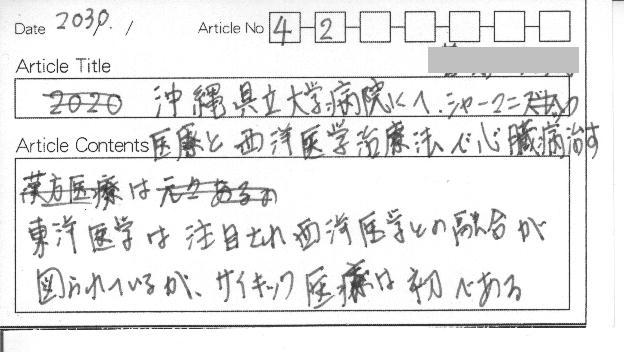 Date 2030. /
Article No 4 2
Article Title
2020 沖縄県立大学病院にて、シャーマニズムの
医療と西洋医学治療法で心臓病治す
Article Contents
漢方医療は元々あるの
東洋医学は注目され西洋医学との融合が
図られているが、サイキック医療は初である